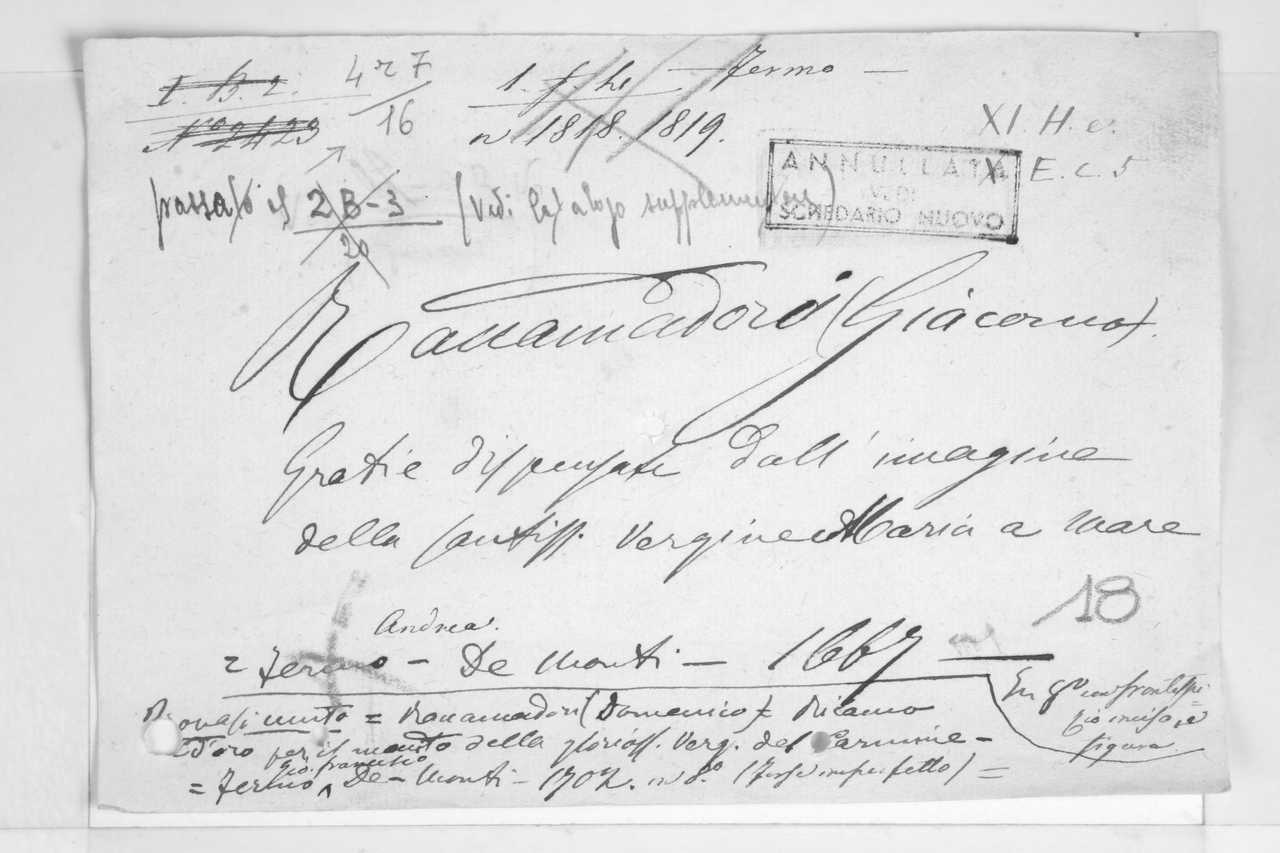 I. B. 2. 4 r 7 1. f. he — Fermo —
N.º 2423 16 n 1818. 1819.
XI. H. e.
ANNULLATA X E. C. 5
VEDI
SCHEDARIO NUOVO
passato al 2 B-3 (Vedi Catalogo supplementare)
20
Raccamadori (Giacomo).
Gratie dispensate dall' imagine
della santiss. Vergine Maria a mare
18
Andrea.
= Fermo — De Monti — 1667 —
In 8º con frontespi=
zio inciso, e
figura.
Trovasi unito = Raccamadori (Domenico) = Ricamo
d'oro per il manto della glorioss. Verg. del Carmine —
Gio. Francesco
= Fermo, De-Monti — 1707. in 8.º (Forse imperfetto) =